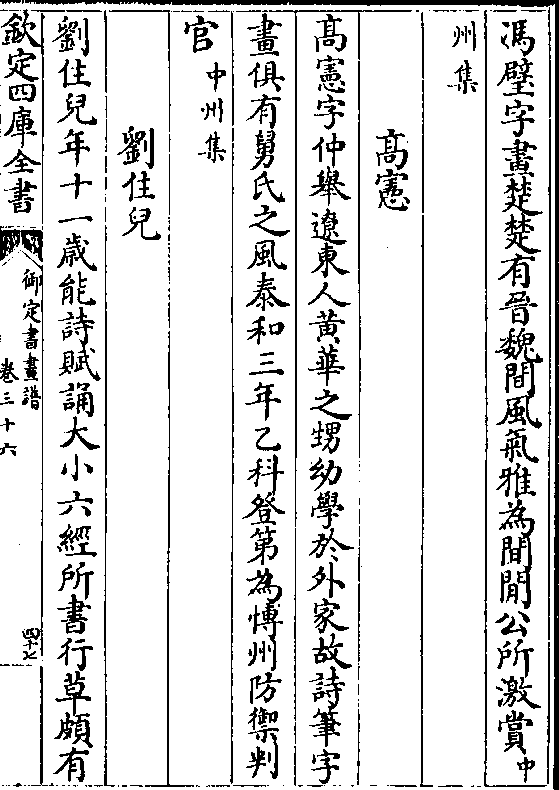 馮璧字畫楚楚有晉魏間風氣雅為閒閒公所激賞中
州集
高憲
高憲字仲舉遼東人黃華之甥幼學於外家故詩筆字
畫俱有舅氏之風泰和三年乙科登第為愽州防禦判
官中州集
劉住兒
劉住兒年十一歲能詩賦誦大小六經所書行草頗有
欽定四庫全書
御定書畫譜
卷三十六
四十七